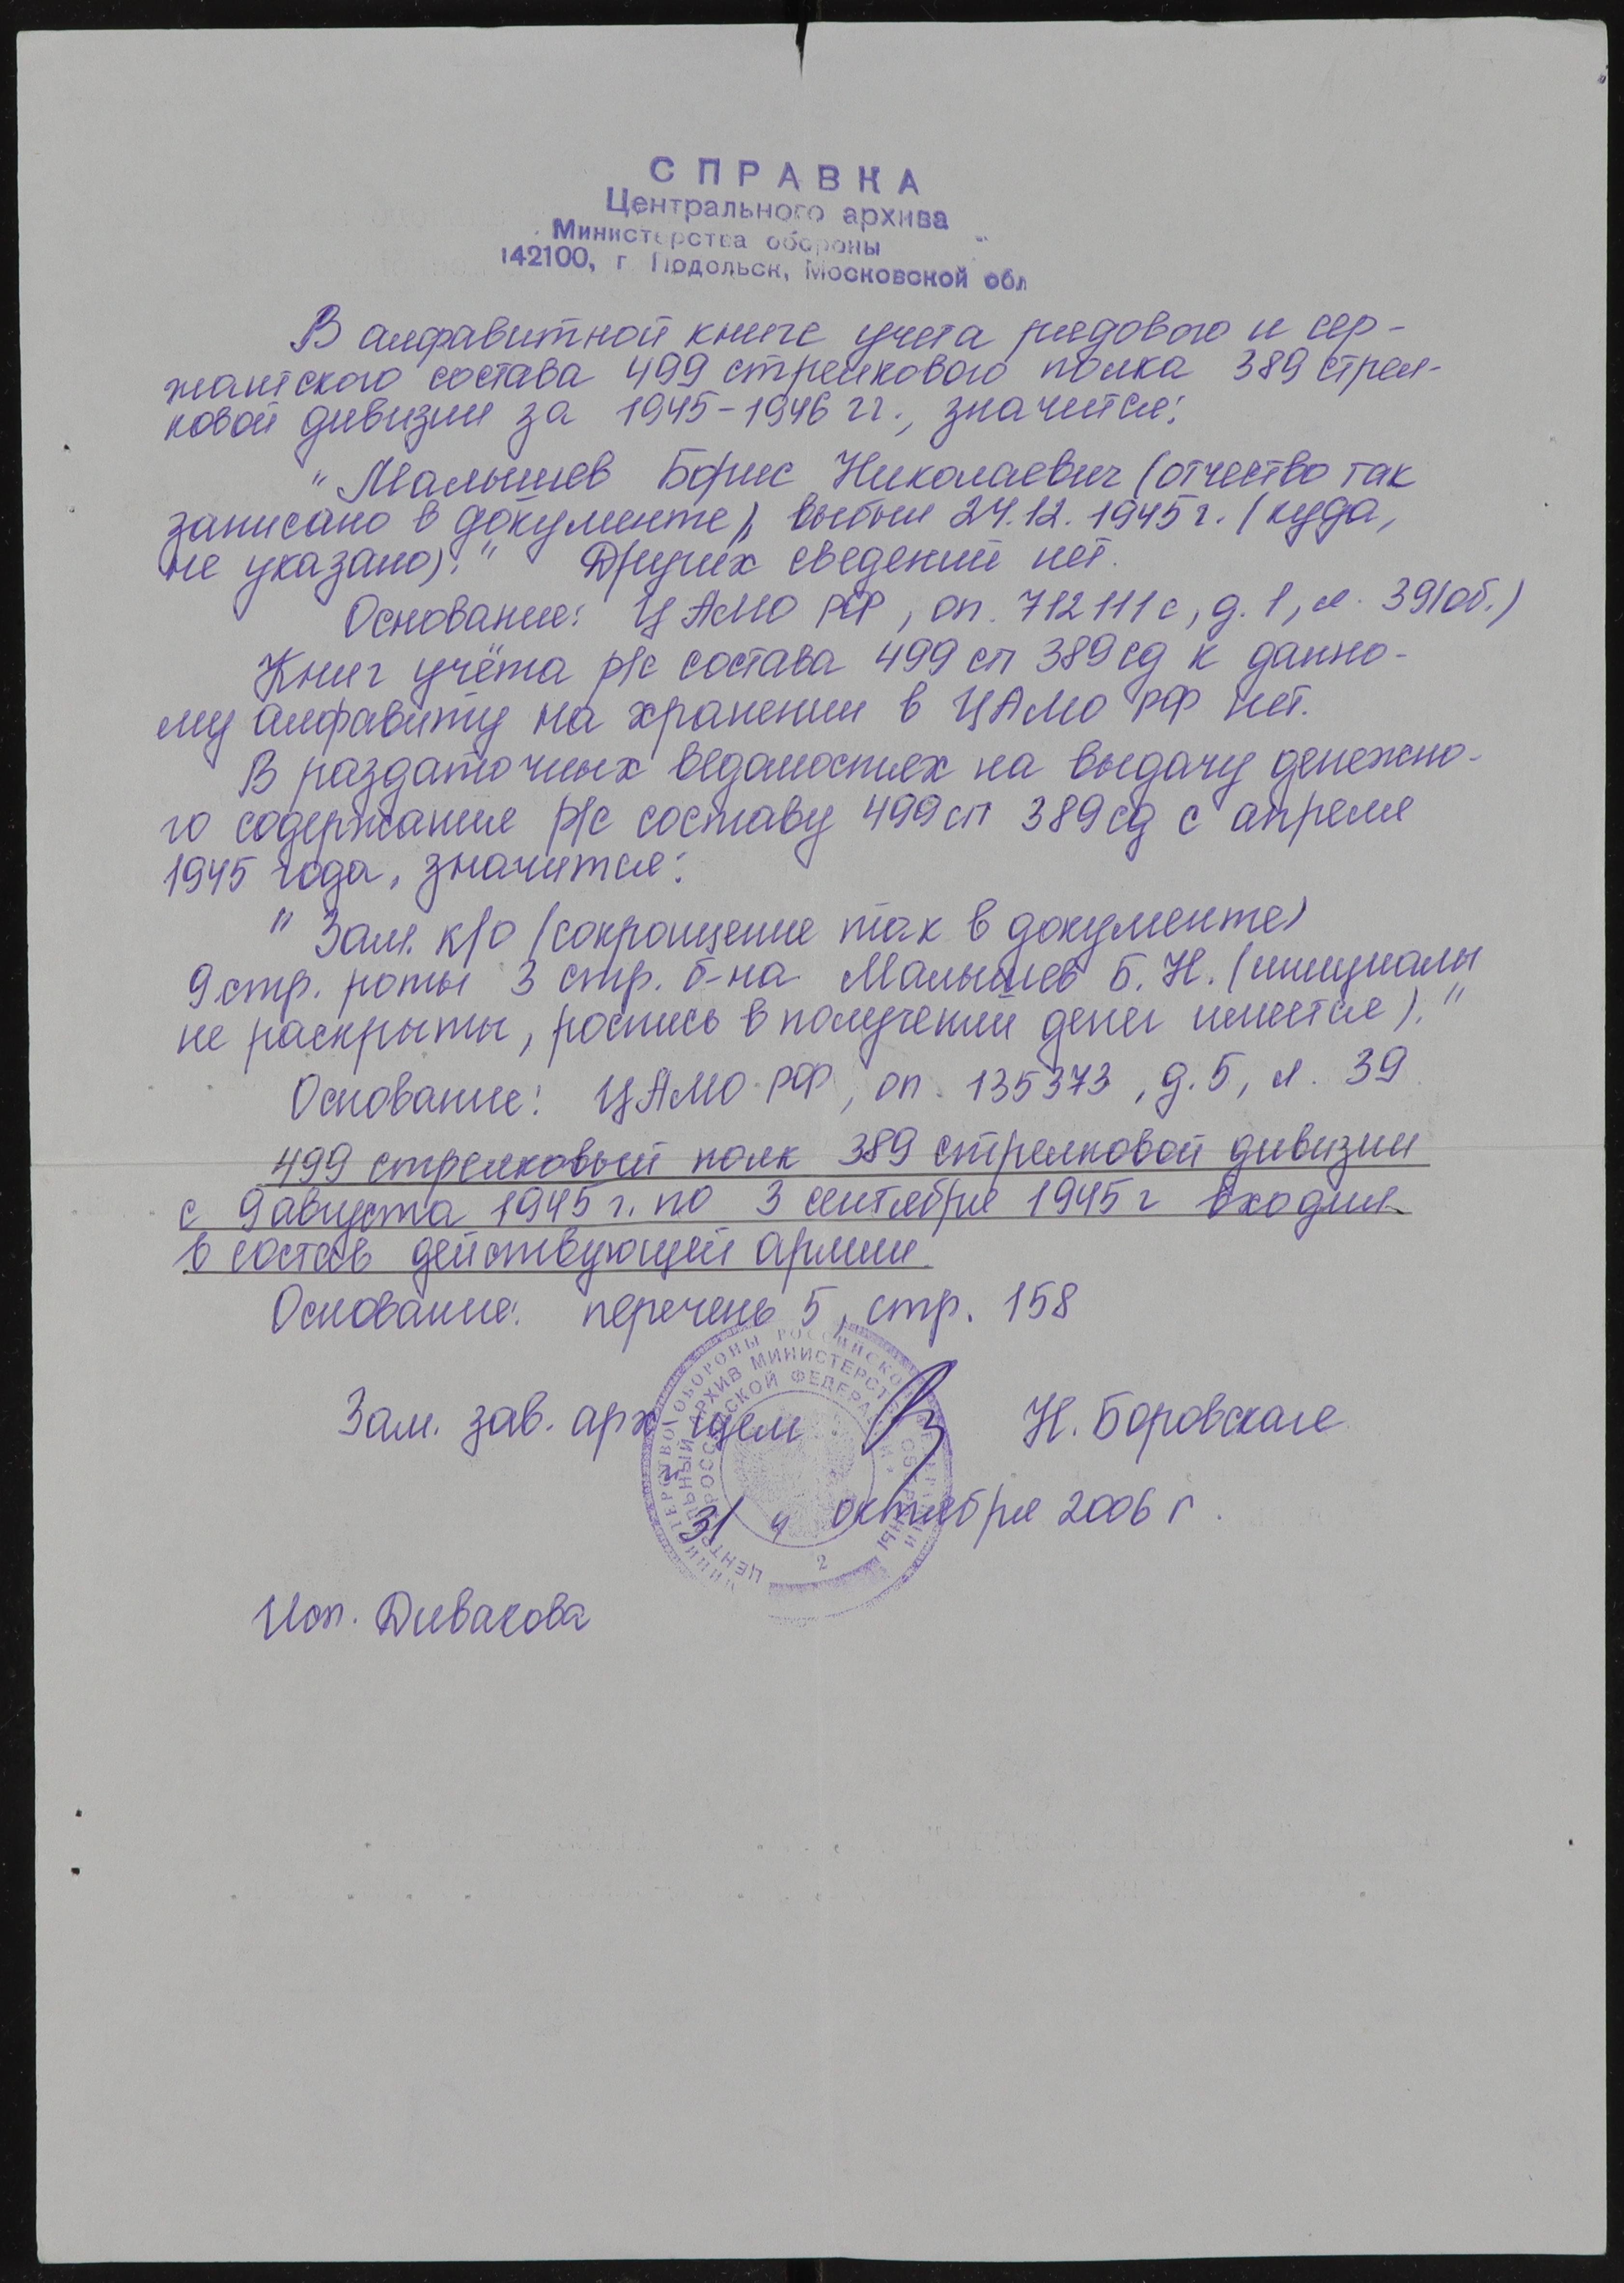 СПРАВКА
Центрального архива
Министерства обороны
142100, г. Подольск, Московской обл
В алфавитной книге учета рядового и сер-
жантского состава 499 стрелкового полка 389 стрел-
ковой дивизии за 1945-1946 гг., значится:
"Малышев Борис Николаевич (отчество так
записано в документе), выбыл 24.12.1945 г. (куда,
не указано)." Других сведений нет.
Основание: ЦАМО РФ, оп. 712111с, д. 1, л. 39(об.)
Книг учёта р/с состава 499 сп 389 сд к данно-
му алфавиту на хранении в ЦАМО РФ нет.
В раздаточных ведомостях на выдачу денежно-
го содержания р/с составу 499 сп 389 сд с апреля
1945 года, значится:
"Зам. к/о (сокращение так в документе)
9 стр. роты 3 стр. б-на Малышев Б. Н. (инициалы
не раскрыты, роспись в получении денег имеется)."
Основание: ЦАМО РФ, оп. 135373, д. 5, л. 39
499 стрелковый полк 389 стрелковой дивизии
с 9 августа 1945 г. по 3 сентября 1945 г входил
в состав действующей армии.
Основание: перечень 5, стр. 158
Зам. зав. арх щем Н. Боровская
31 " октября 2006 г.
МИНИСТЕРСТВО ОБОРОНЫ РОССИЙСКОЙ ФЕДЕРАЦИИ
ЦЕНТРАЛЬНЫЙ АРХИВ МИНИСТЕРСТВА ОБОРОНЫ
РОССИЙСКОЙ ФЕДЕРАЦИИ
2
Исп. Дивакова